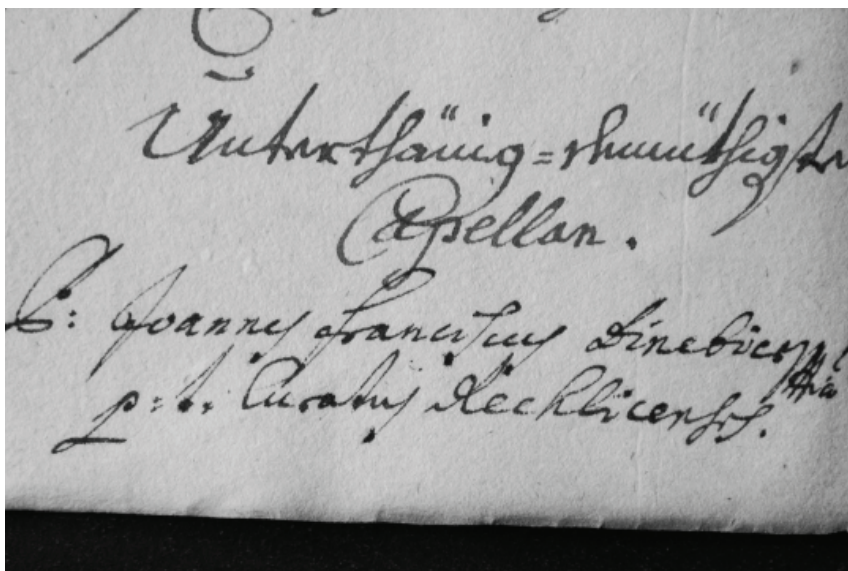 Unterthänig=demüthigster
Capellan.
P: Joannes Franciscus
p: t. Curatus Rechlicensis.